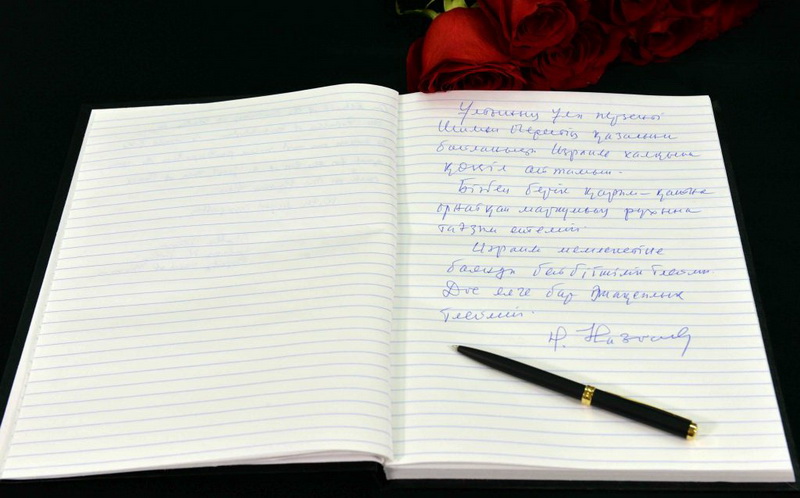 Ұлтының ұлы перзенті
Шимон Перестің қазасына
байланысты Израиль халқына
көңіл айтамын.
Бізбен берік қарым-қатынас
орнатқан марқұмның рухына
тағзым етемін.
Израиль мемлекетіне
баянды бейбітшілік тілеймін.
Дос елге бар жақсылық
тілеймін.
Н. Назарбаев